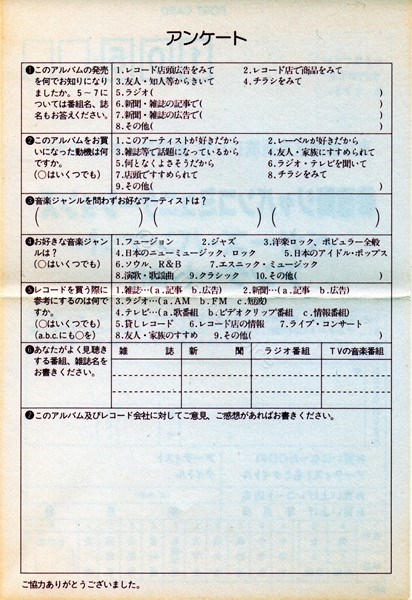 アンケート
❶このアルバムの発売を何でお知りになりましたか。5〜7については番組名、誌名もお答えください。
1.レコード店頭広告をみて 2.レコード店で商品をみて
3.友人・知人等からきいて 4.チラシをみて
5.ラジオ( )
6.新聞・雑誌の記事で( )
7.新聞・雑誌の広告で( )
8.その他( )
❷このアルバムをお買いになった動機は何ですか。
(○はいくつでも)
1.このアーティストが好きだから 2.レーベルが好きだから
3.雑誌等で話題になっているから 4.友人・家族にすすめられて
5.何となくよさそうだから 6.ラジオ・テレビを聞いて
7.店頭ですすめられて 8.チラシをみて
9.その他( )
❸音楽ジャンルを問わずお好きなアーティストは?
( ) ( ) ( )
❹お好きな音楽ジャンルは?
(○はいくつでも)
1.フュージョン 2.ジャズ 3.洋楽ロック、ポピュラー全般
4.日本のニューミュージック、ロック 5.日本のアイドル・ポップス
6.ソウル、R&B 7.エスニック・ミュージック
8.演歌・歌謡曲 9.クラシック 10.その他( )
❺レコードを買う際に参考にするのは何ですか。
(○はいくつでも)
(a.b.cにも○を)
1.雑誌…(a.記事 b.広告) 2.新聞…(a.記事 b.広告)
3.ラジオ…(a.AM b.FM c.短波)
4.テレビ…(a.歌番組 b.ビデオクリップ番組 c.情報番組)
5.貸しレコード 6.レコード店の情報 7.ライブ・コンサート
8.友人・家族のすすめ 9.その他( )
❻あなたがよく見聴きする番組、雑誌名をお書きください。
雑誌 新聞 ラジオ番組 TVの音楽番組
❼このアルバム及びレコード会社に対してご意見、ご感想があればお書きください。
ご協力ありがとうございました。